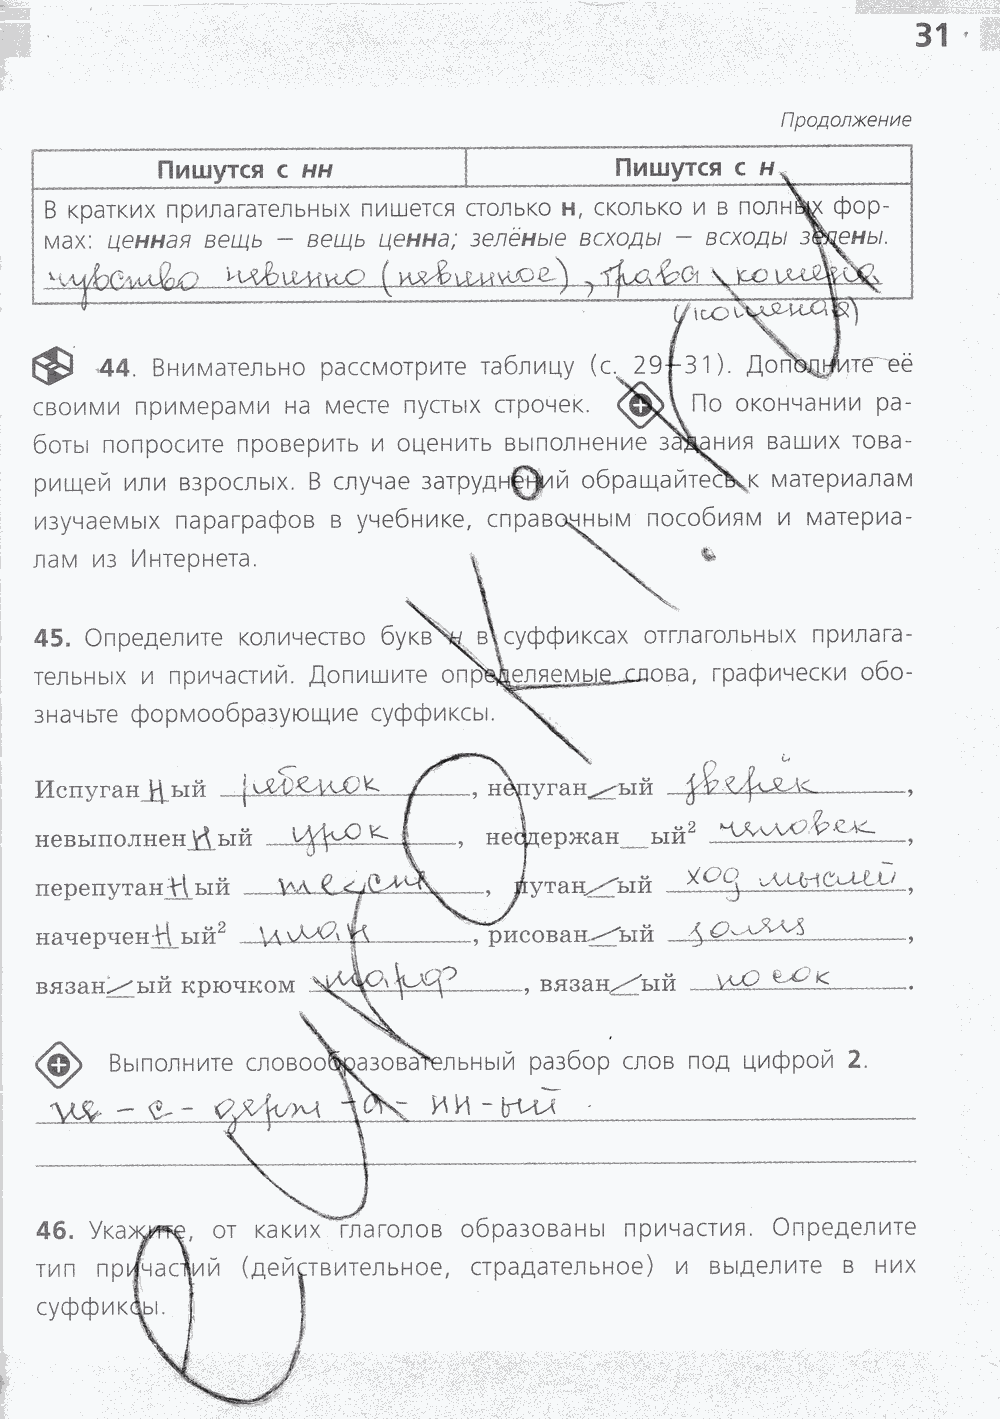 31
Продолжение
Пишутся с нн
Пишутся с н
В кратких прилагательных пишется столько н, сколько и в полных фор-
мах: ценная вещь — вещь ценна; зелёные всходы — всходы зелены.
чувство невинно (невинное), трава кошена
(кошеная)
44. Внимательно рассмотрите таблицу (с. 29–31). Дополните её
своими примерами на месте пустых строчек. По окончании ра-
боты попросите проверить и оценить выполнение задания ваших това-
рищей или взрослых. В случае затруднений обращайтесь к материалам
изучаемых параграфов в учебнике, справочным пособиям и материа-
лам из Интернета.
45. Определите количество букв н в суффиксах отглагольных прилага-
тельных и причастий. Допишите определяемые слова, графически обо-
значьте формообразующие суффиксы.
Испуган н ый ребенок, непуган ый зверёк,
невыполнен н ый урок, несдержан__ый² человек,
перепутан н ый текст, путан ый ход мыслей,
начерчен н ый² план, рисован ый заяц,
вязан ый крючком шарф, вязан ый носок.
Выполните словообразовательный разбор слов под цифрой 2.
не - с - держ - а - нн - ый
46. Укажите, от каких глаголов образованы причастия. Определите
тип причастий (действительное, страдательное) и выделите в них
суффиксы.